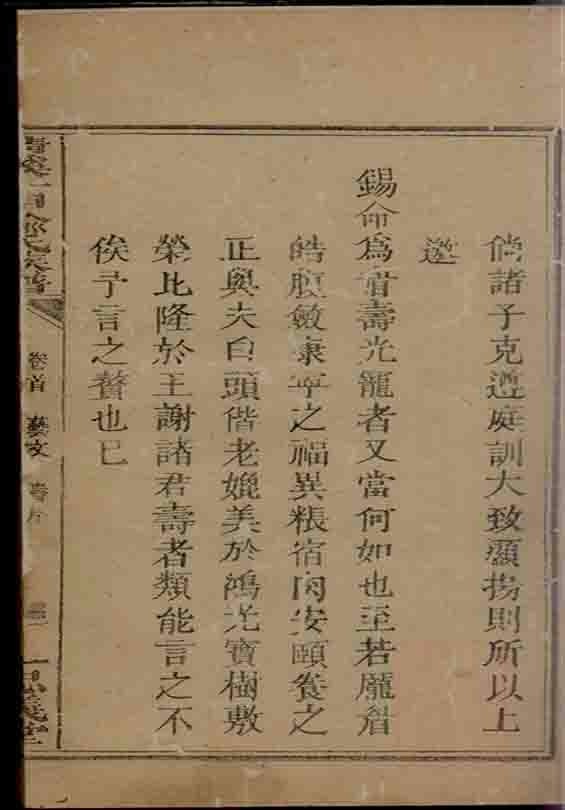 倘諸子克遵庭訓大致顯揚則所以上
邀
錫命爲首壽光寵者又當何如也至若龐眉
皓腹斂康寧之福異粻宿肉安頤養之
正與夫白頭偕老媲美於鴻光寶樹敷
榮比隆於王謝諸君壽者類能言之不
俟予言之贅也已
卷首 藝文 壽序